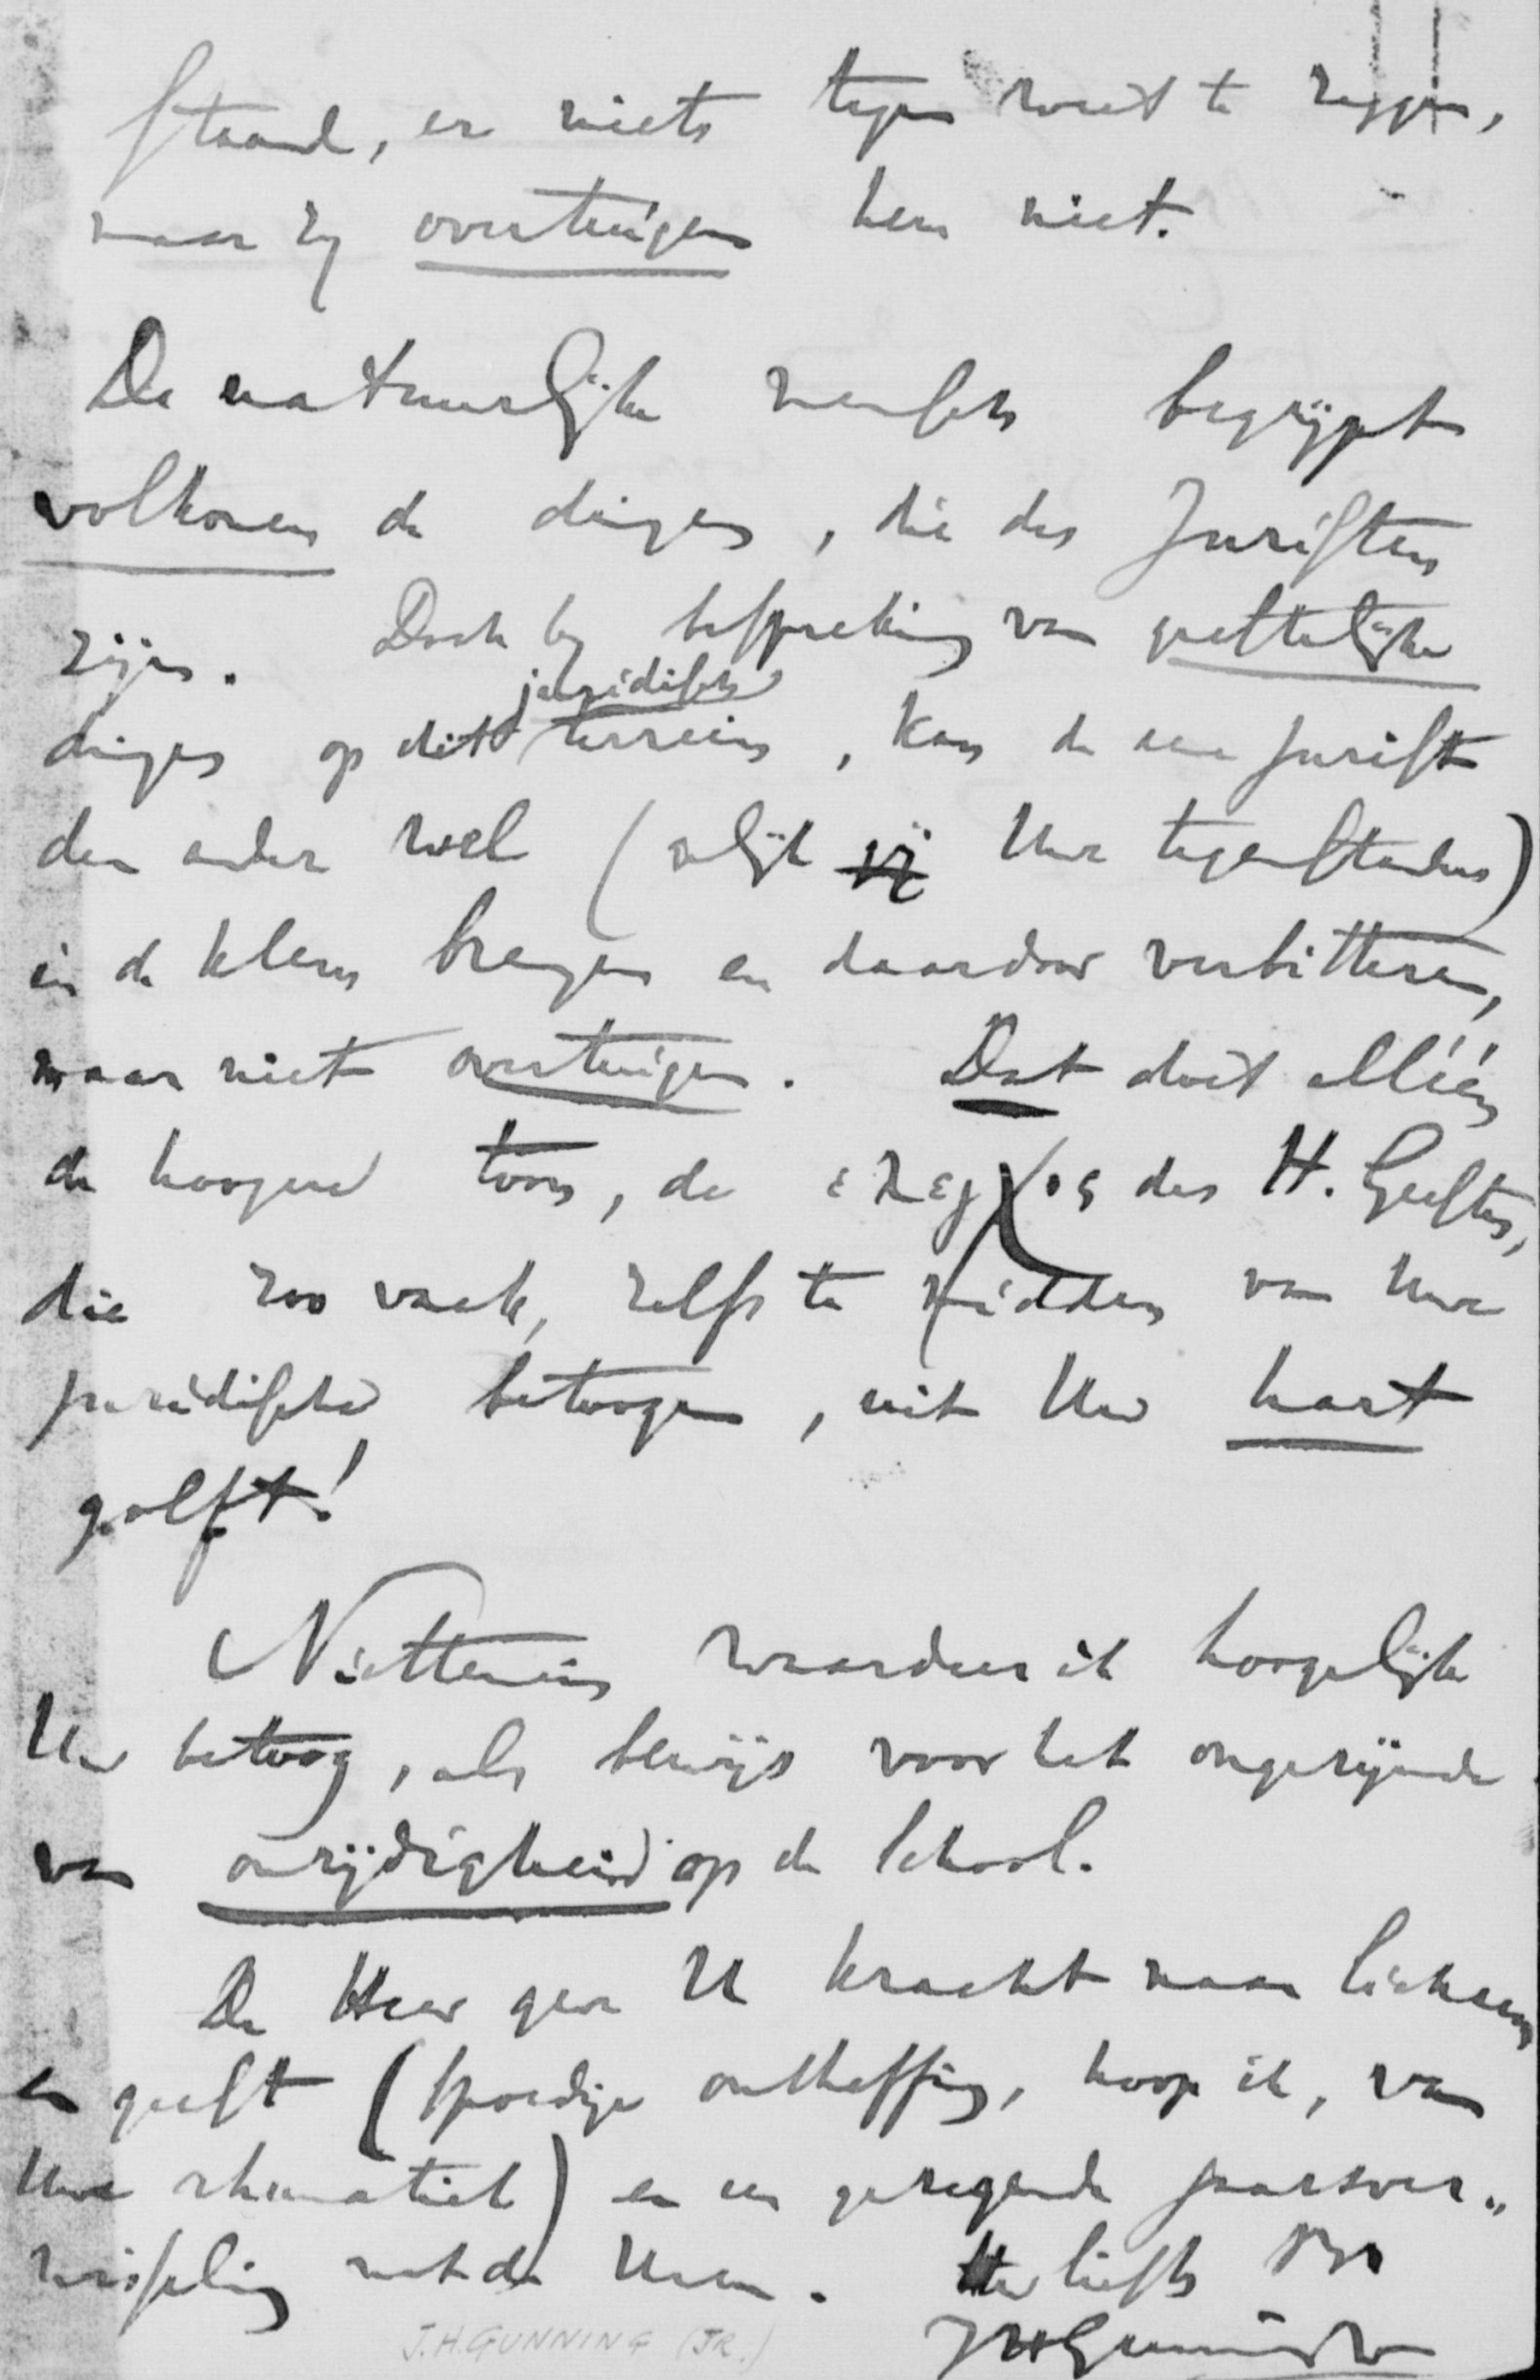 staand, er niets tegen weet te zeggen,
maar zy overtuigen hem niet.
De natuurlijke mensch begrijpt
volkomen de dingen, die des Juristen
zijn. Doch by bespreking van geestelijke
juridisch
dingen op dit terrein, kan de eene jurist
den ander wel (gelijk gij Uwe tegenstanders)
in de klem brengen en daardoor verbitteren,
maar niet overtuigen. Dat doet alléén
de hoogere toon, de ελεγχος des H. Geestes,
die zoo vaak, zelfs te midden van Uwe
juridische betoogen, uit Uw hart
golft!
Niettemin waardeer ik hoogelijk
Uw betoog, als bewijs voor het ongerijmde
van onzijdigheid op de School.
De Heer geve U kracht naar lichaam
en geest (spoedige ontheffing, hoop ik, van
Uwe rhumatiek) en een gezegende jaarsver„
wisseling met de Uwen. Uw liefh. Br
JHGunning Jr
J.H. GUNNING (JR.)